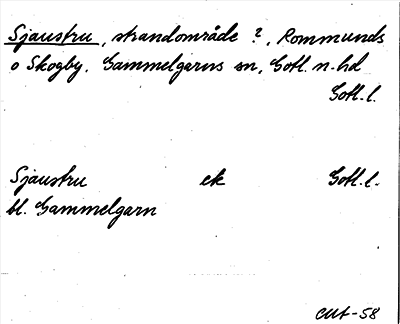 Sjaustru, strandområde ?, Rommunds
o Skogby, Gammelgarns sn, Gotl. n. hd
Gotl. l.
Sjaustru ek Gotl. l.
bl. Gammelgarn